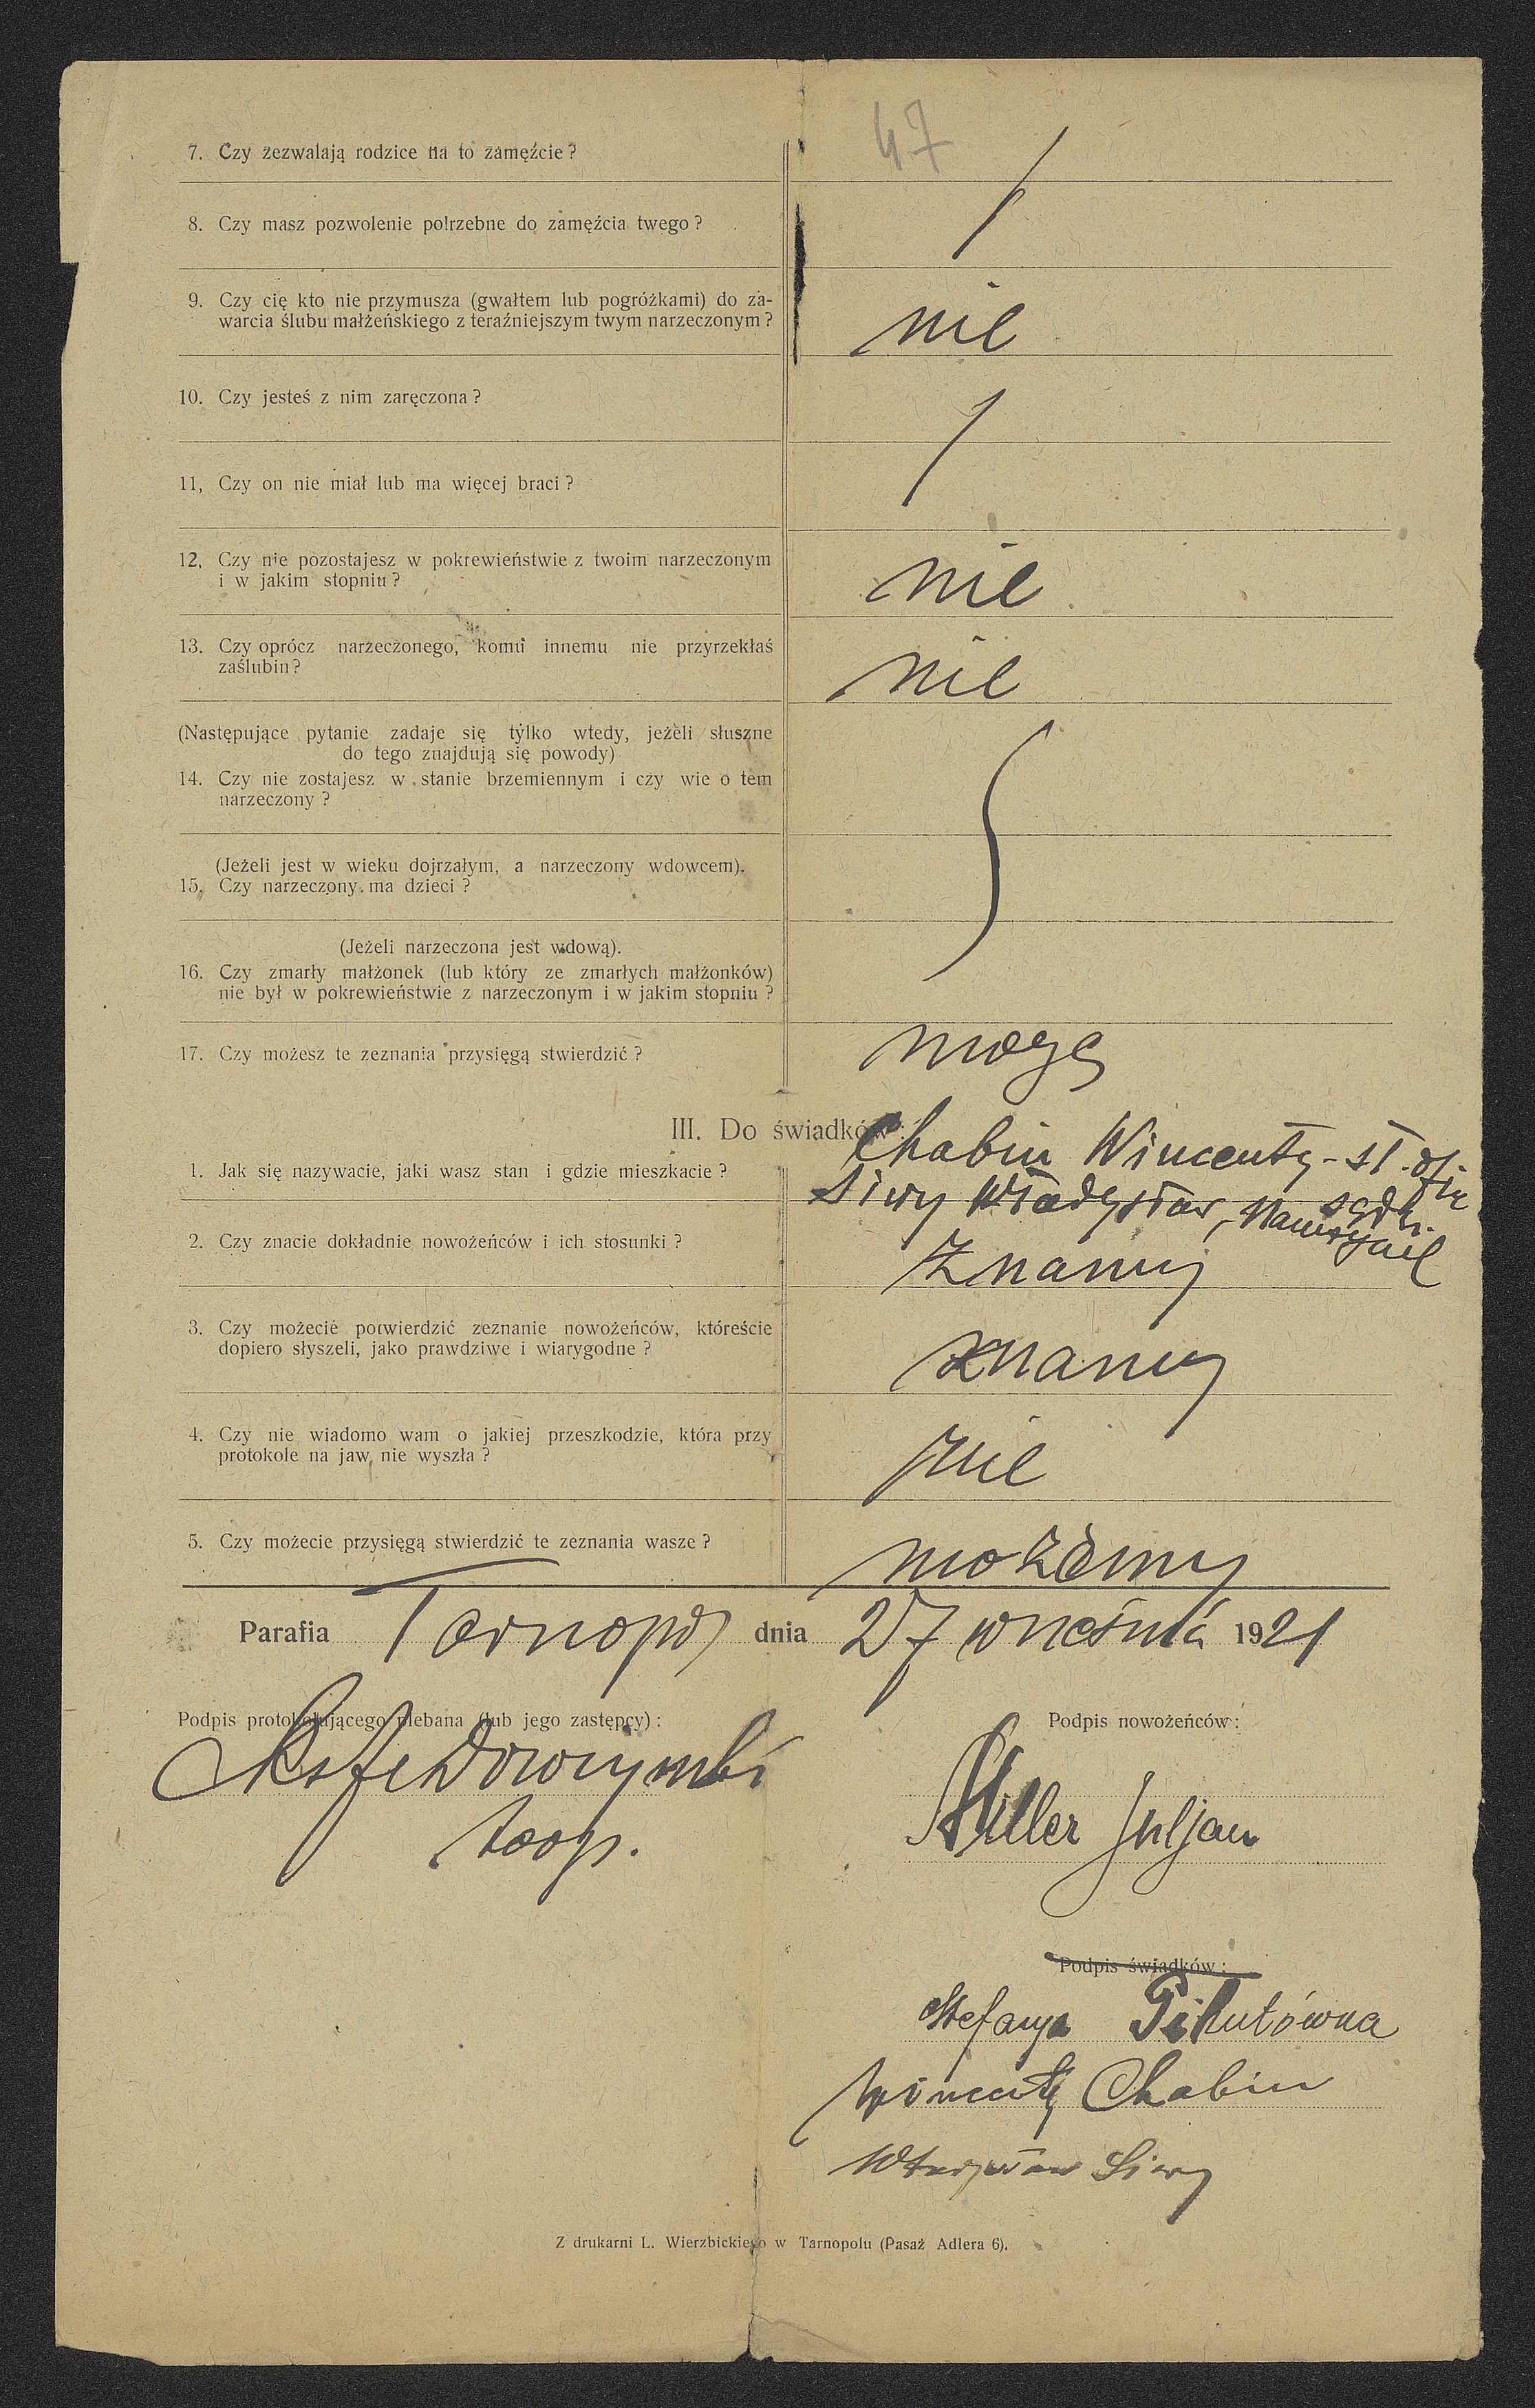 47
7. Czy zezwalają rodzice na to zamęźcie?
8. Czy masz pozwolenie potrzebne do zamęźcia twego?
9. Czy cię kto nie przymusza (gwałtem lub pogróżkami) do za-
warcia ślubu małżeńskiego z teraźniejszym twym narzeczonym?
nie
10. Czy jesteś z nim zaręczona?
11, Czy on nie miał lub ma więcej braci?
12, Czy nie pozostajesz w pokrewieństwie z twoim narzeczonym
i w jakim stopniu?
nie
13. Czy oprócz narzeczonego, komu innemu nie przyrzekłaś
zaślubin?
nie
(Następujące pytanie zadaje się tylko wtedy, jeżeli słuszne
do tego znajdują się powody)
14. Czy nie zostajesz w stanie brzemiennym i czy wie o tem
narzeczony?
(Jeżeli jest w wieku dojrzałym, a narzeczony wdowcem).
15. Czy narzeczony ma dzieci?
(Jeżeli narzeczona jest wdową).
16. Czy zmarły małżonek (lub który ze zmarłych małżonków)
nie był w pokrewieństwie z narzeczonym i w jakim stopniu?
17. Czy możesz te zeznania przysięgą stwierdzić?
mogę
III. Do świadków:
1. Jak się nazywacie, jaki wasz stan i gdzie mieszkacie?
Chabin Wincenty - st.
Siwy Władysław,
2. Czy znacie dokładnie nowożeńców i ich stosunki?
Znamy
3. Czy możecie potwierdzić zeznanie nowożeńców, któreście
dopiero słyszeli, jako prawdziwe i wiarygodne?
znamy
4. Czy nie wiadomo wam o jakiej przeszkodzie, która przy
protokole na jaw nie wyszła?
nie
5. Czy możecie przysięgą stwierdzić te zeznania wasze?
możemy
Parafia Tarnopol dnia 27 września 1921
Podpis protokołującego plebana (lub jego zastępcy):
Podpis nowożeńców:
Miller Juljan
Podpis świadków:
Stefanja
Wincenty Chabin
Władysław Siwy
Z drukarni L. Wierzbickiego w Tarnopolu (Pasaż Adlera 6).